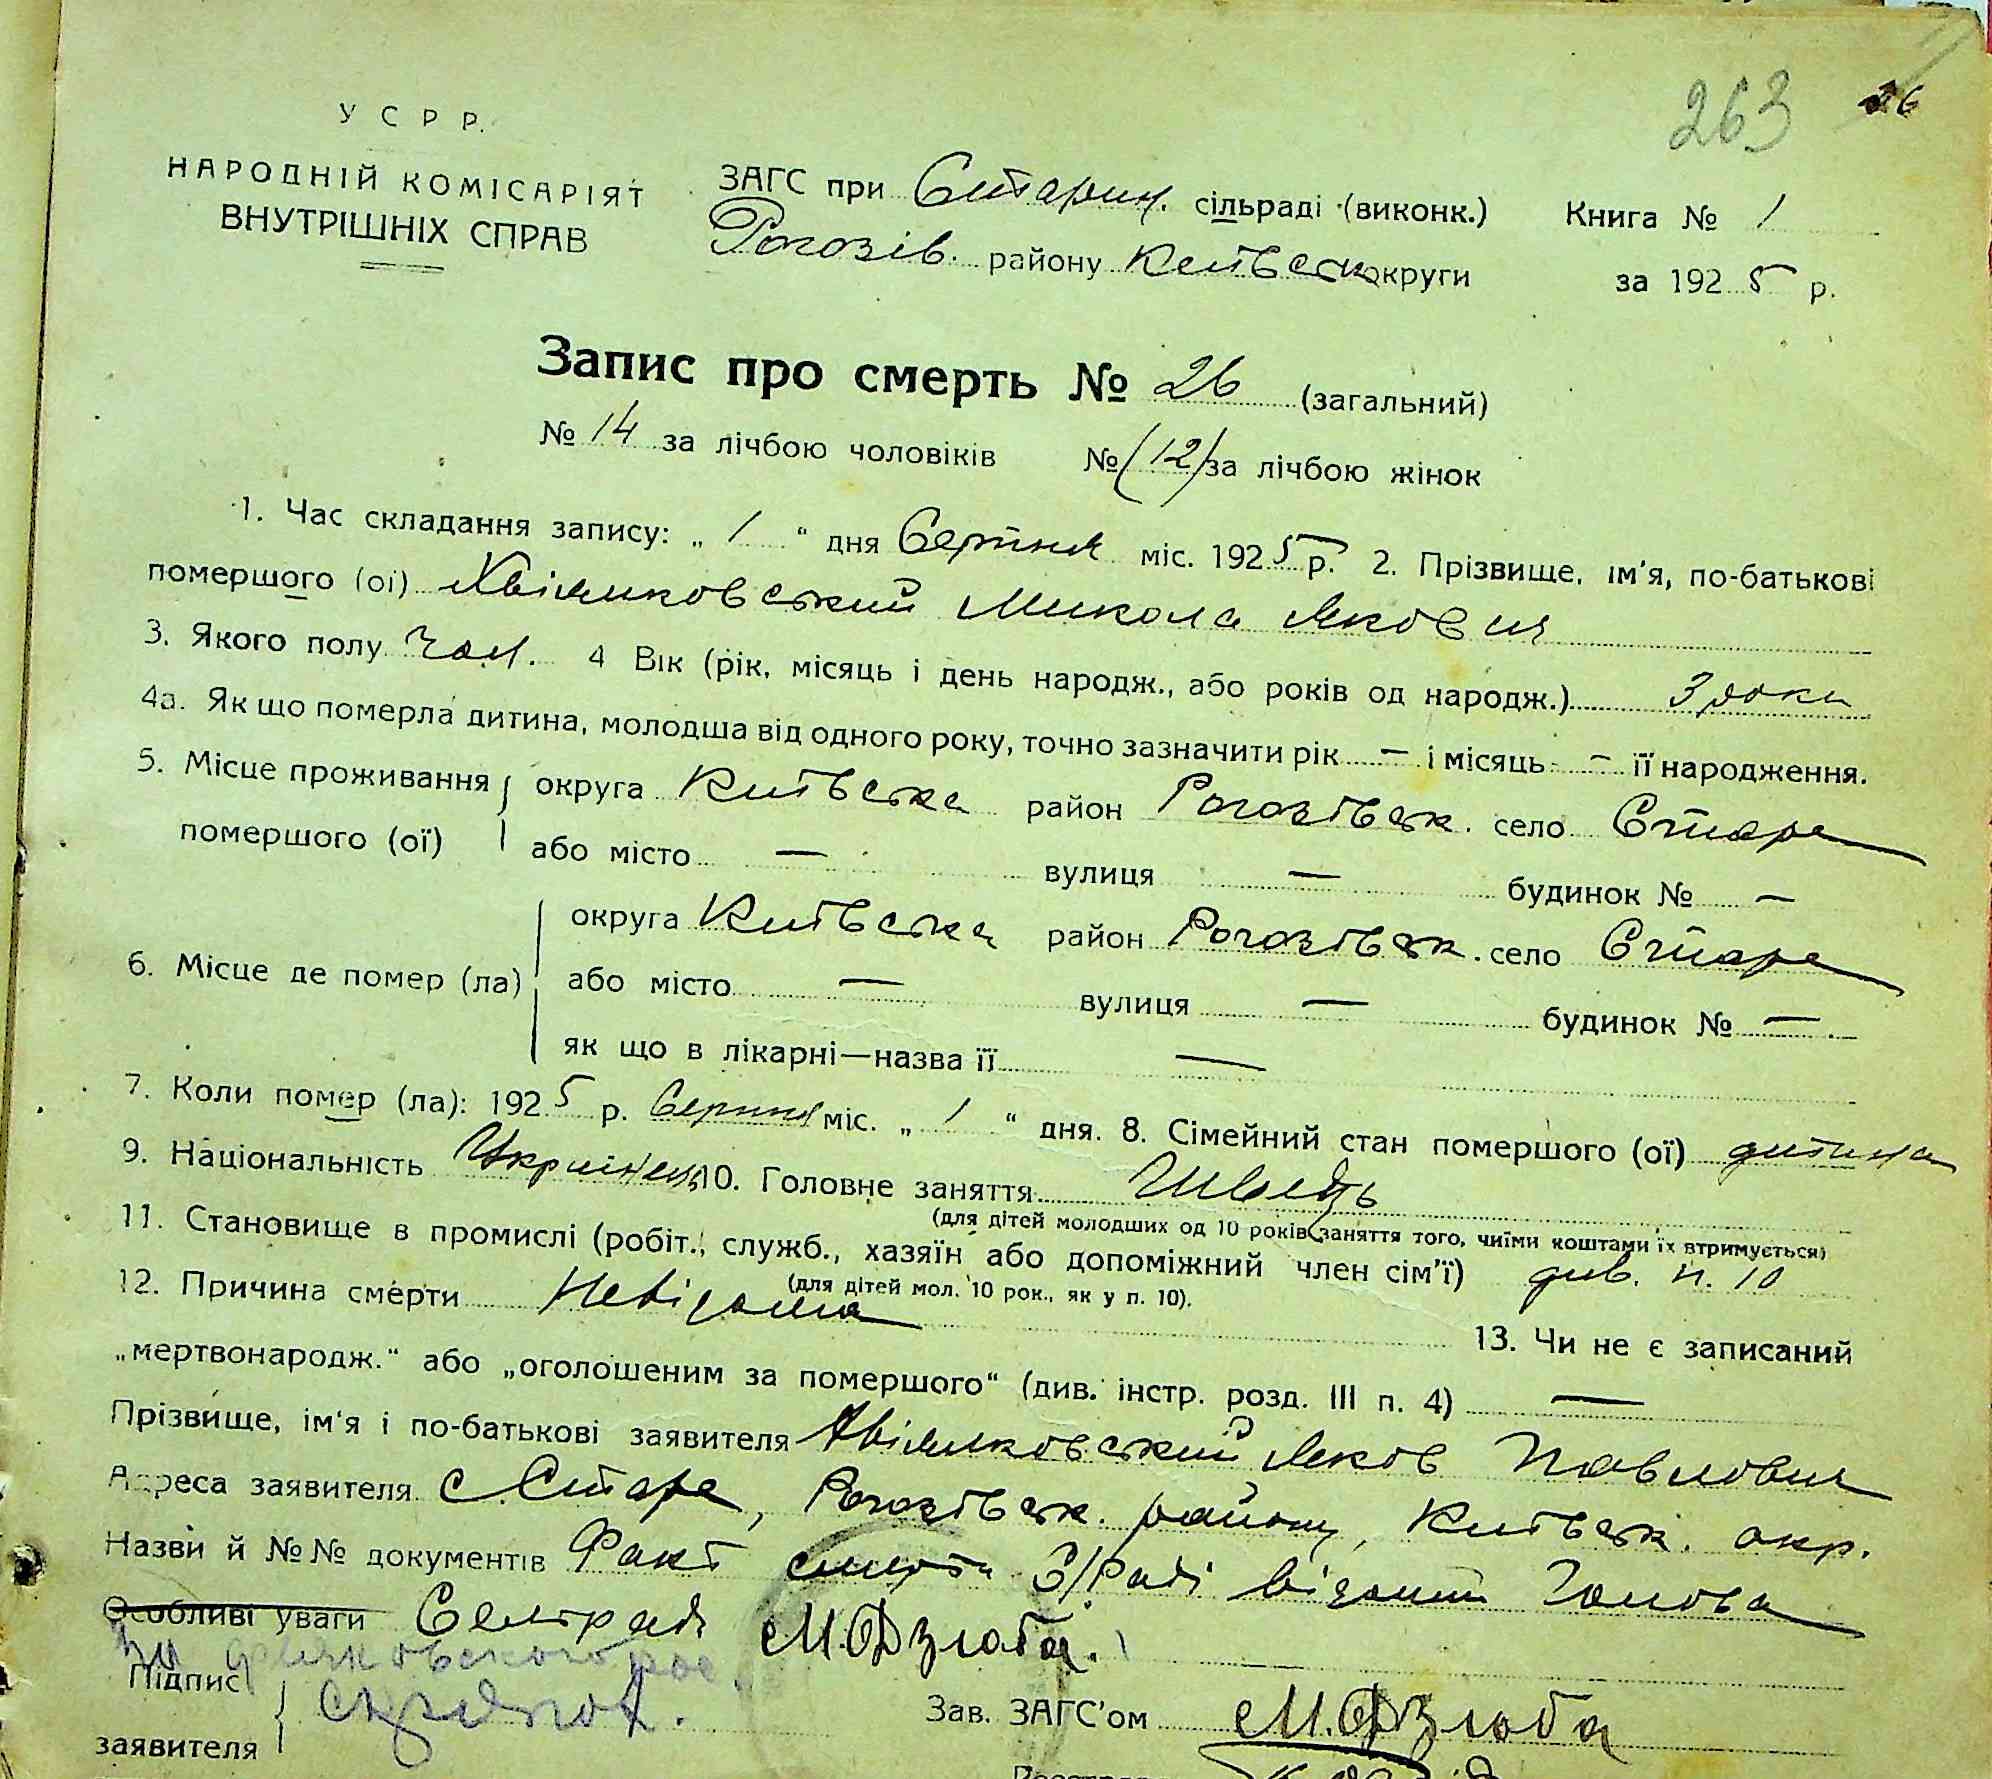 263 26
У С Р Р.
НАРОДНІЙ КОМІСАРІЯТ
ВНУТРІШНІХ СПРАВ
ЗАГС при Старин. сільраді (виконк.) Книга № 1
Рогозів. району Київськ округи за 1925 р.
Запис про смерть № 26 (загальний)
№ 14 за лічбою чоловіків № (12) за лічбою жінок
1. Час складання запису: „ 1 “ дня Серпня міс. 1925 р. 2. Прізвище, ім'я, по-батькові
помершого (ої) Хвіликовський Микола Якович
3. Якого полу чол. 4 Вік (рік, місяць і день народж., або років од народж.) 3 роки
4а. Як що померла дитина, молодша від одного року, точно зазначити рік — і місяць — її народження.
5. Місце проживання округа Київська район Рогозівськ. село Старе
помершого (ої) або місто — вулиця — будинок № —
округа Київська район Рогозівськ. село Старе
6. Місце де помер (ла) або місто — вулиця — будинок № —
як що в лікарні—назва її —
7. Коли помер (ла): 1925 р. Серпня міс. „ 1 “ дня. 8. Сімейний стан помершого (ої) дитина
9. Національність Українець 10. Головне заняття Швець
(для дітей молодших од 10 років заняття того, чиїми коштами їх втримується)
11. Становище в промислі (робіт., служб., хазяїн або допоміжний член сім'ї) див. п. 10
(для дітей мол. 10 рок., як у п. 10).
12. Причина смерти Невідома 13. Чи не є записаний
„мертвонародж.“ або „оголошеним за помершого“ (див. інстр. розд. III п. 4) —
Прізвище, ім'я і по-батькові заявителя Хвіликовський Яков Павлович
Адреса заявителя с. Старе, Рогозівськ. району, Київськ. окр.
Назви й №№ документів Факт смерти С/Раді відомий Голова
Особливі уваги Сельради М. Дзюба.
Підпис
заявителя
Зав. ЗАГС'ом М. Дзюба